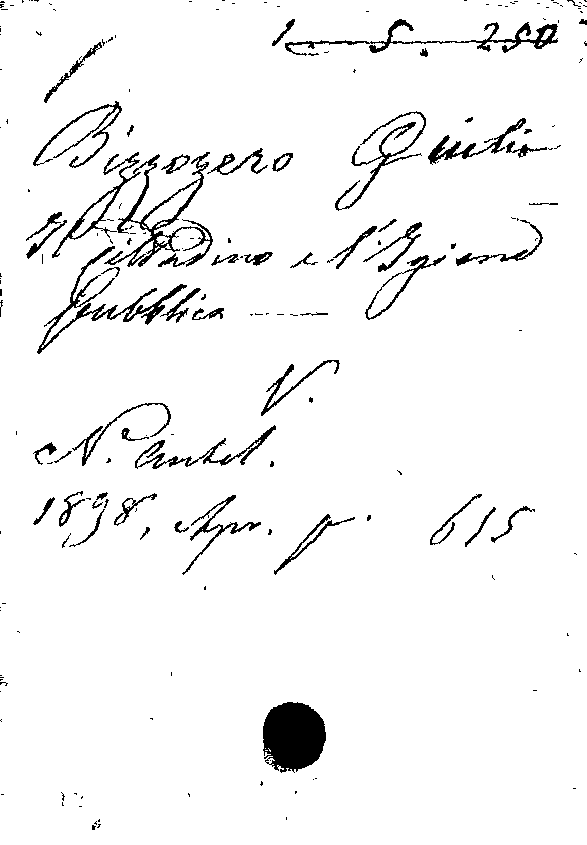 1. 5. 250
Bizzozero Giulio
Il
Cittadino e l'Igiene
Pubblica
V.
N. Antol.
1898, Apr. p. 615